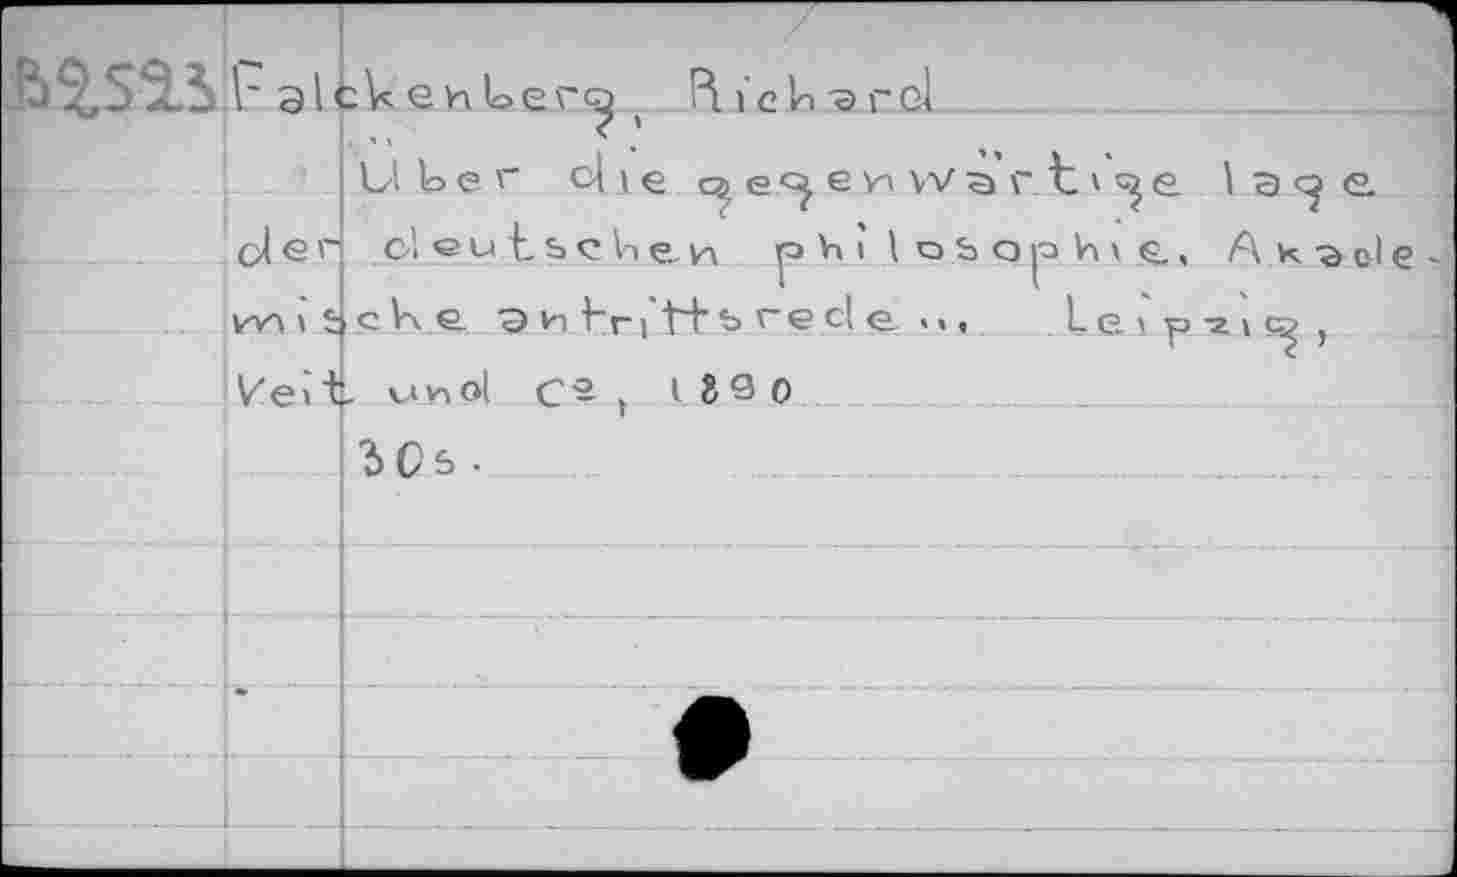 B2,523 Falckenberg, Richard
Über die gegenwärtige lage
der deutschen philosophie, Akade-
mische antrittsrede ... Leipzig,
Veit und Co, 1890
30s.